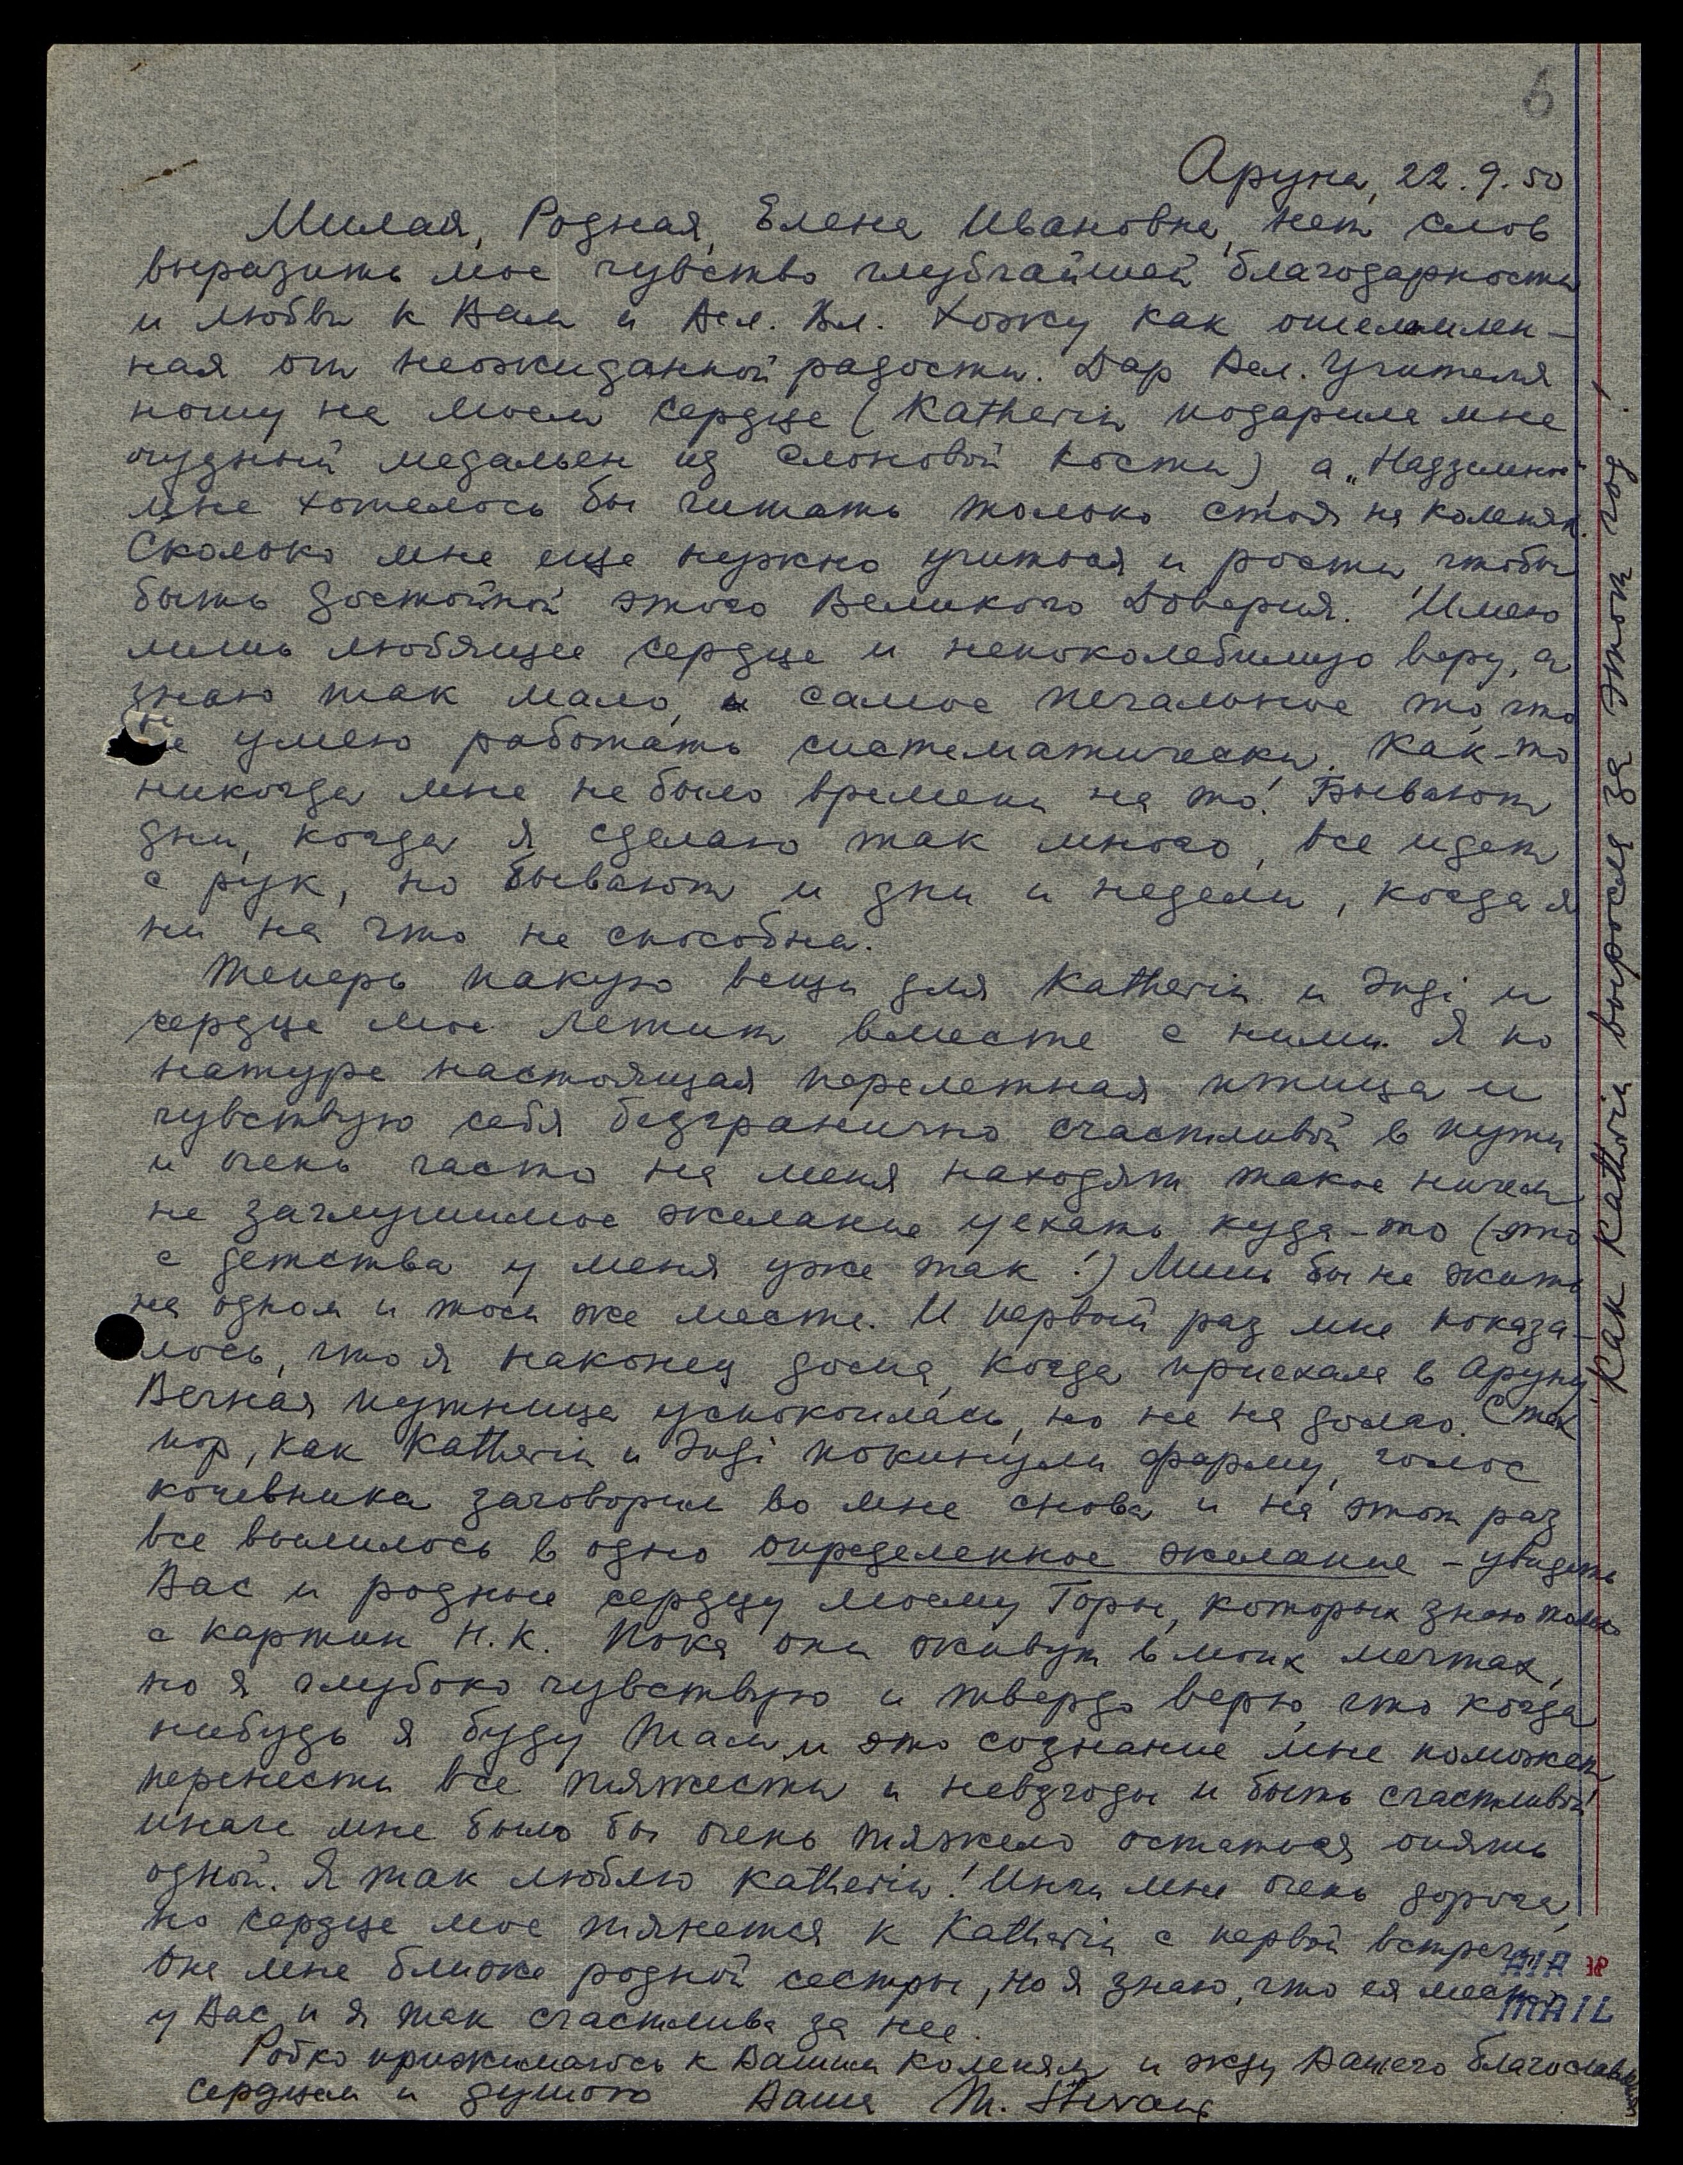 6
Аруна, 22.9.50
Милая, Родная, Елена Ивановна, нет слов
выразить мое чувство глубчайшей благодарности
и любви к Вам и Вел. Вл. Хожу как ошеломлен-
ная от неожиданной радости. Дар Вел. Учителя
ношу на моем сердце (Katherin подарила мне
чудный медальен из слоновой кости), а „Надземное"
мне хотелось бы читать только стоя на коленях.
Сколько мне еще нужно учиться и рости, чтобы
быть достойной этого Великого Доверия. Имею
лишь любящее сердце и непоколебимую веру, а
знаю так мало, а самое печальное то, что
не умею работать систематически. Как-то
никогда мне не было времени на то! Бывают
дни, когда я сделаю так много, все идет
с рук, но бывают и дни и недели, когда я
ни на что не способна.
Теперь пакую вещи для Katherin и Инgi и
сердце мое летит вместе с ними. Я по
натуре настоящая перелетная птица и
чувствую себя безгранично счастливой в пути
и очень часто на меня находят такое ничем
не заглушимое желание уехать куда-то (это
с детства у меня уже так!) Лишь бы не жить
на одном и том же месте. И первый раз мне показа-
лось, что я наконец дома, когда приехала в Аруну
Вечная путница успокоилась, но не на долго. С тех
пор, как Katherin и Инgi покинули фарму, голос
кочевника заговорил во мне снова и на этот раз
все вылилось в одно определенное желание – увидеть
Вас и родные сердцу моему Горы, которых знаю только
с картин Н.К. Пока они живут в моих мечтах,
но я глубоко чувствую и твердо верю, что когда
нибудь я буду там и это сознание мне поможет
перенести все тяжести и невзгоды и быть счастливой
иначе мне было бы очень тяжело остаться опять
одной. Я так люблю Katherin! Инги мне очень дорога,
но сердце мое тянется к Katherin с первой встречи.
Она мне ближе родной сестры, но я знаю, что ея место
у Вас и я так счастлива за нее.
Робко прижимаюсь к Вашим коленям и жду Вашего благословения
сердцем и душою Ваша M.
Как Katherin выросла за этот год!
AIR
MAIL